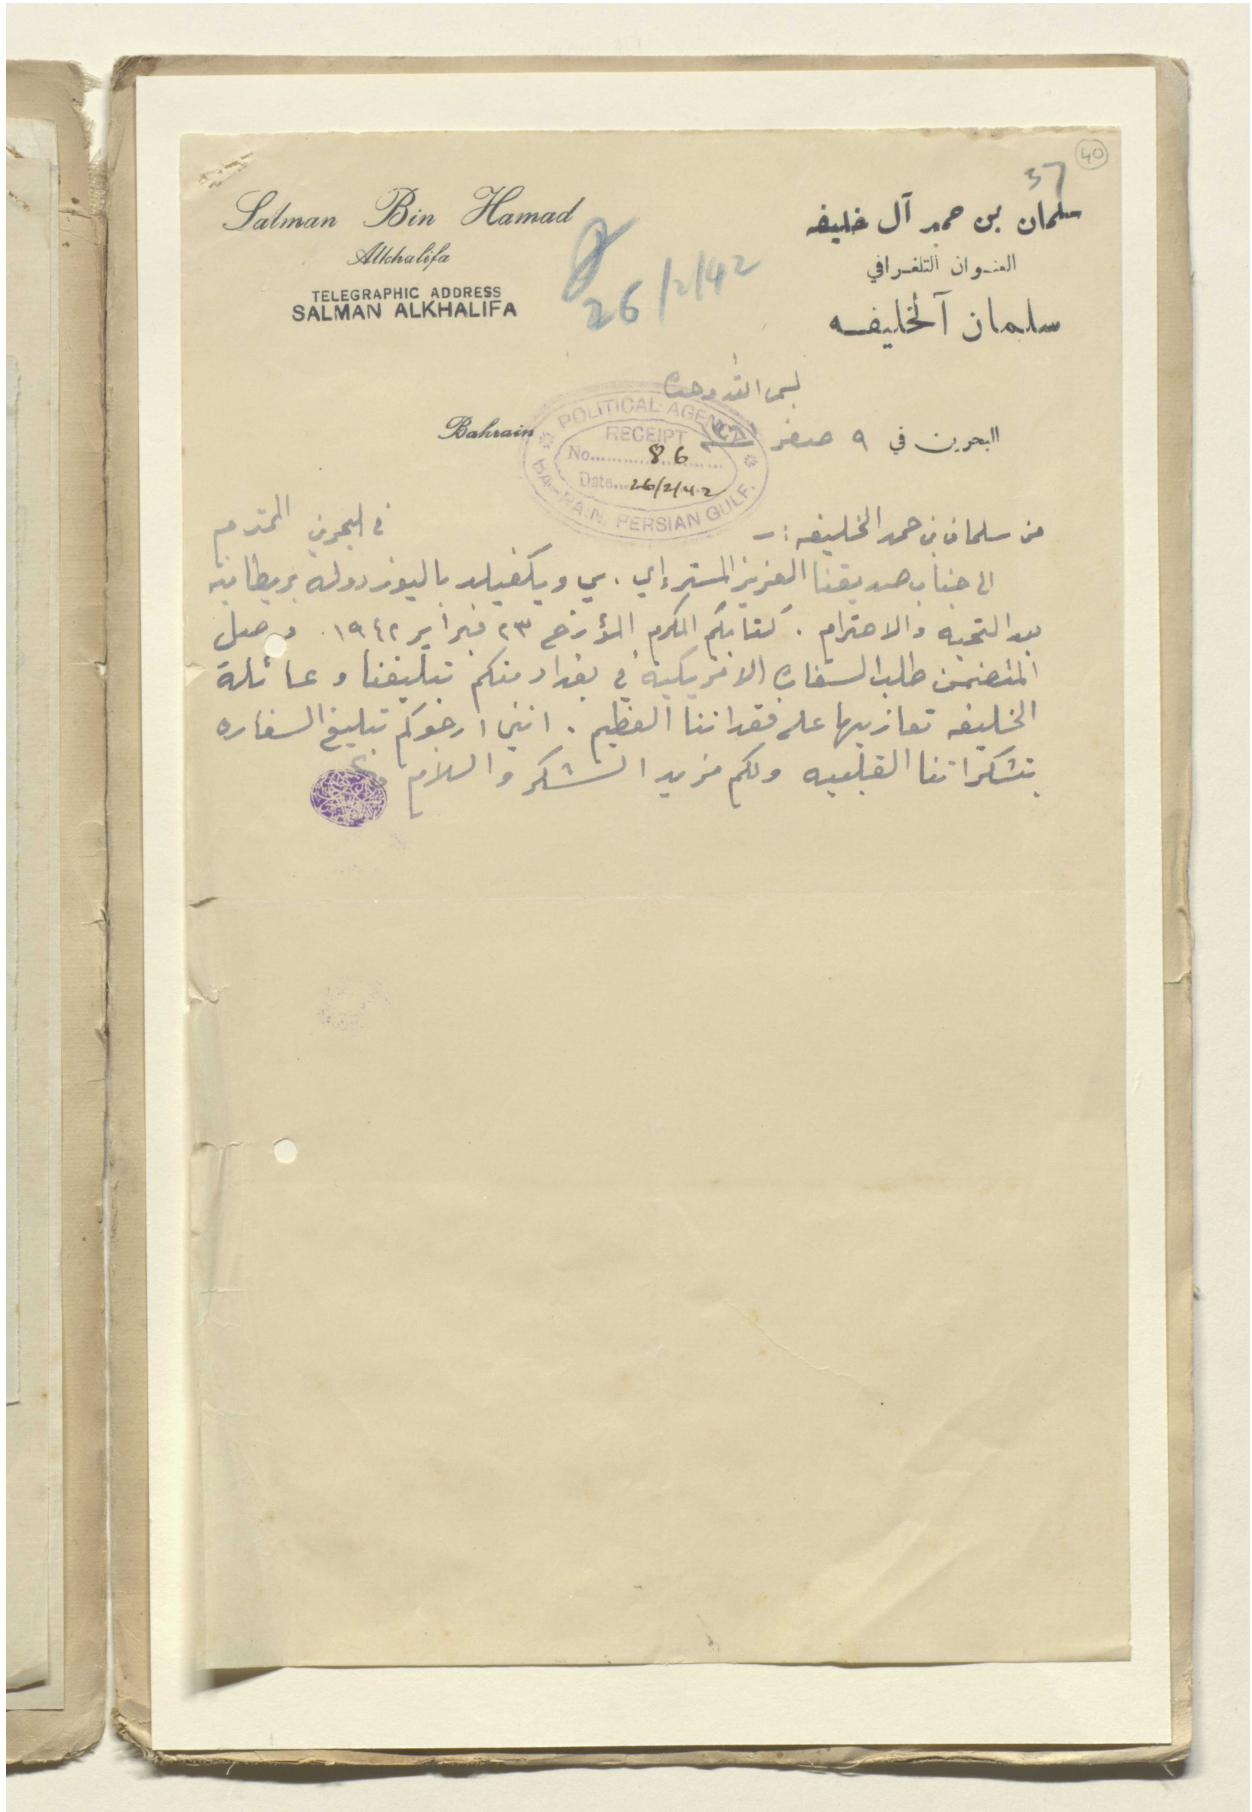 40
37
Salman Bin Hamad
Alkhalifa
TELEGRAPHIC ADDRESS
SALMAN ALKHALIFA
سلمان بن حمد آل خليفه
العنوان التلغرافي
سلمان آلخليفه
26/2/42
بسم الله وحده
Bahrain
البحرين في ٩ صفر
POLITICAL AGENCY
RECEIPT
No. 86
Date 26/2/42
BAHRAIN, PERSIAN GULF.
من سلمان بن حمد الخليفه :-
الى جناب صديقنا العزيز المستر إي . بي ويكفيلد باليوز دولة بريطانيه في البحرين المحترم
بعد التحيه والاحترام . كتابكم المكرم المؤرخ ٢٣ فبراير ١٩٤٢ وصل
المتضمن طلب السفاره الامريكية في بغداد منكم تبليغنا وعائلة
الخليفه تعازيها على فقداننا العظيم . انني ارجوكم تبليغ السفاره
بتشكراتنا القلبيه ولكم مزيد الشكر والسلام